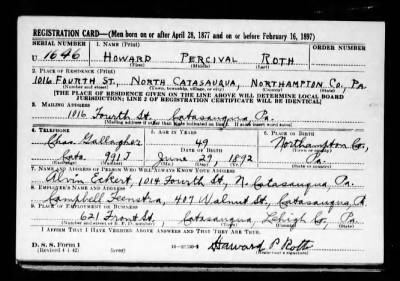 REGISTRATION CARD—(Men born on or after April 28, 1877 and on or before February 16, 1897)
SERIAL NUMBER 1. NAME (Print)
U 1646 HOWARD PERCIVAL ROTH
(First) (Middle) (Last)
2. PLACE OF RESIDENCE (Print)
1016 FOURTH ST., NORTH CATASAUQUA, NORTHAMPTON CO., PA
(Number and street) (Town, township, village, or city) (County) (State)
[THE PLACE OF RESIDENCE GIVEN ON THE LINE ABOVE WILL DETERMINE LOCAL BOARD
JURISDICTION; LINE 2 OF REGISTRATION CERTIFICATE WILL BE IDENTICAL]
3. MAILING ADDRESS
1016 Fourth St. Catasauqua Pa.
[Mailing address if other than place indicated on line 2. If same insert word same]
4. TELEPHONE 5. AGE IN YEARS 6. PLACE OF BIRTH
Chas. Gallagher 49 Northampton Co.,
DATE OF BIRTH (Town or county)
Cata. 991J June 29, 1892 Pa.
(Exchange) (Number) (Mo.) (Day) (Yr.) (State or country)
7. NAME AND ADDRESS OF PERSON WHO WILL ALWAYS KNOW YOUR ADDRESS
Alvin Eckert, 1014 Fourth St., N. Catasauqua, Pa.
8. EMPLOYER'S NAME AND ADDRESS
Campbell Feenstra, 407 Walnut St., Catasauqua, P.
9. PLACE OF EMPLOYMENT OR BUSINESS
621 Front St., Catasauqua, Lehigh Co., Pa.
(Number and street or R. F. D. number) (Town) (County) (State)
I AFFIRM THAT I HAVE VERIFIED ABOVE ANSWERS AND THAT THEY ARE TRUE.
D. S. S. Form 1
(Revised 4-1-42) (over) Howard P. Roth
(Registrant's signature)